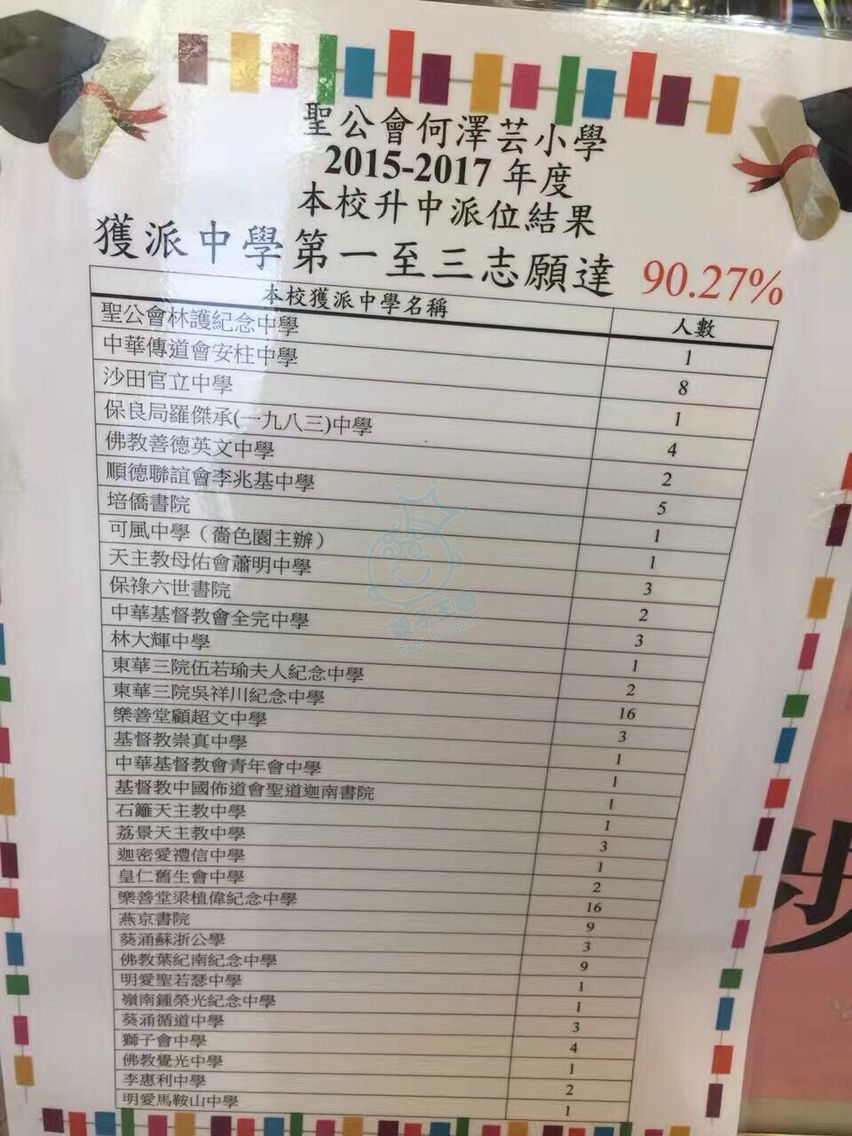 聖公會何澤芸小學
2015-2017 年度
本校升中派位結果
獲派中學第一至三志願達 90.27%
本校獲派中學名稱 人數
聖公會林護紀念中學 1
中華傳道會安柱中學 8
沙田官立中學 1
保良局羅傑承(一九八三)中學 4
佛教善德英文中學 2
順德聯誼會李兆基中學 5
培僑書院 1
可風中學（嗇色園主辦） 1
天主教母佑會蕭明中學 3
保祿六世書院 2
中華基督教會全完中學 3
林大輝中學 1
東華三院伍若瑜夫人紀念中學 2
東華三院吳祥川紀念中學 16
樂善堂顧超文中學 3
基督教崇真中學 1
中華基督教會青年會中學 1
基督教中國佈道會聖道迦南書院 1
石籬天主教中學 1
荔景天主教中學 3
迦密愛禮信中學 1
皇仁舊生會中學 2
樂善堂梁植偉紀念中學 16
燕京書院 9
葵涌蘇浙公學 3
佛教葉紀南紀念中學 9
明愛聖若瑟中學 1
嶺南鍾榮光紀念中學 1
葵涌循道中學 3
獅子會中學 4
佛教覺光中學 1
李惠利中學 2
明愛馬鞍山中學 1
親子王國